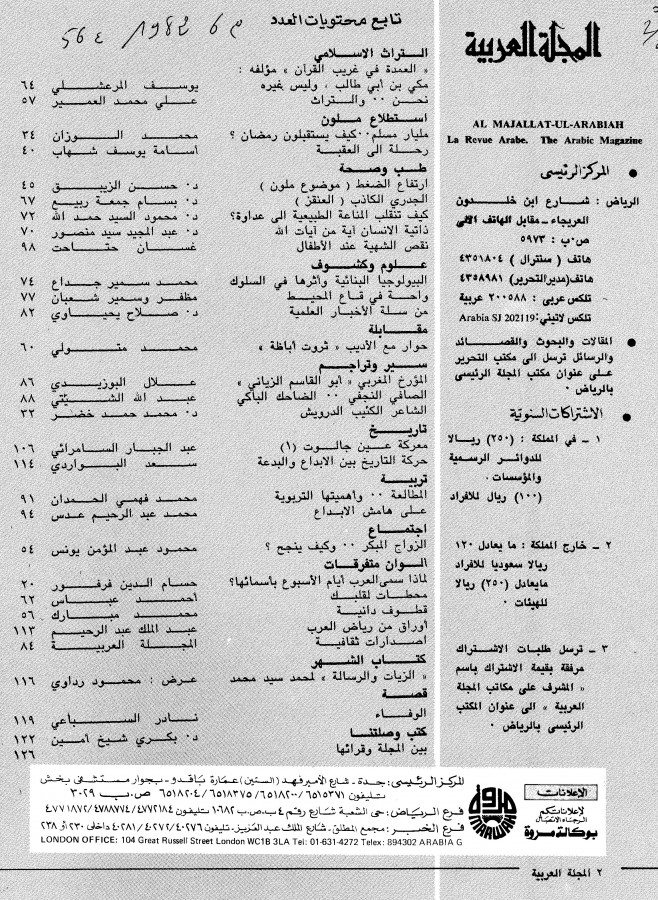 المجلة العربية
AL MAJALLAT-UL-ARABIAH
La Revue Arabe. The Arabic Magazine
● المركز الرئيسى
الرياض : شارع ابن خلدون
العريجاء - مقابل الهاتف الآلي
ص٠ب : ٥٩٧٣
هاتف ( سنترال ) ٤٣٥١٨٠٤
هاتف(مديرالتحرير) ٤٣٥٨٩٨١
تلكس عربى : ٢٠٠٥٨٨ عربية
تلكس لاتيني: Arabia SJ 202119
● المقالات والبحوث والقصائد
والرسائل ترسل الى مكتب التحرير
على عنوان مكتب المجلة الرئيسى
بالرياض ٠
● الاشتراكات السنوية
١ - في المملكة : (٢٥٠) ريالا
للدوائر الرسمية
والمؤسسات ٠
(١٠٠) ريال للافراد
٢ - خارج المملكة : ما يعادل ١٢٠
ريالا سعوديا للافراد
مايعادل (٢٥٠) ريالا
للهيئات ٠
٣ - ترسل طلبات الاشتراك
مرفقة بقيمة الاشتراك باسم
« المشرف على مكاتب المجلة
العربية » الى عنوان المكتب
الرئيسى بالرياض ٠
56ع 1982 م 6
تابع محتويات العدد
التراث الاسلامي
« العمدة في غريب القرآن » مؤلفه :
مكي بن أبي طالب ، وليس غيره يوسف المرعشلي ٦٤
نحن ٠٠ والتراث علي محمد العمير ٥٧
استطلاع ملون
مليار مسلم٠٠كيف يستقبلون رمضان ؟ محمد الوزان ٣٤
رحلة الى العقبة اسامة يوسف شهاب ٤٠
طب وصحة
ارتفاع الضغط ( موضوع ملون ) د٠ حسن الزيبق ٤٥
الجدري الكاذب ( العنقز ) د٠ بسام جمعة ربيع ٦٧
كيف تنقلب المناعة الطبيعية الى عداوة؟ د٠ محمود السيد حمد الله ٧٢
ذاتية الانسان آية من آيات الله د٠ عبد المجيد سيد منصور ٧٠
نقص الشهية عند الأطفال غسان حتاحت ٩٨
علوم وكشوف
البيولوجيا البنائية وأثرها في السلوك محمد سمير جداع ٧٤
واحة في قاع المحيط مظفر وسمير شعبان ٧٧
من سلة الأخبار العلمية د٠ صلاح يحياوي ٨٢
مقابلة
حوار مع الأديب « ثروت أباظة » محمد متولي ٦٠
سير وتراجم
المؤرخ المغربي «أبو القاسم الزياني » علال البوزيدي ٨٦
الصافي النجفي ٠٠ الضاحك الباكي عبد الله الشيتي ٨٨
الشاعر الكئيب الدرويش د٠ محمد حمد خضر ٣٢
تاريخ
معركة عين جالوت (١) عبد الجبار السامرائي ١٠٦
حركة التاريخ بين الابداع والبدعة سعد البواردي ١١٤
تربية
المطالعة ٠٠ وأهميتها التربوية محمد فهمي الحمدان ٩١
على هامش الابداع محمد عبد الرحيم عدس ٩٤
اجتماع
الزواج المبكر ٠٠ وكيف ينجح ؟ محمود عبد المؤمن يونس ٥٤
الوان متفرقات
لماذا سمى العرب أيام الأسبوع بأسمائها؟ حسام الدين فرفور ٢٠
محطات لقلبك احمد عباس ٦٢
قطوف دانية محمد مبارك ٥٦
أوراق من رياض العرب عبد الملك عبد الرحيم ١١٣
اصدارات ثقافية المجلة العربية ٨٤
كتاب الشهر
« الزيات والرسالة » لمحمد سيد محمد عرض : محمود رداوي ١١٦
قصة
الوفاء نادر السباعي ١١٩
كتب وصلتنا د٠ بكري شيخ أمين ١٢٢
بين المجلة وقرائها ١٢٦
الإعلانات
لإعلاناتكم
الرجاء الاتصال
بوكالة مروة
مروة
MARWAH
المركز الرئيسى: جدة - شارع الأمير فهد (الستين) عمارة باقدو - بجوار مستشفى بخش
تليفون ٦٥١٥٣٧١/ ٦٥١٨٢٠٠/ ٦٥١٨٣٧٥/ ٦٥١٨٢٠٤ ص.ب ٣٠٢٩
فرع الرياض: حى الشعبة شارع رقم ٤ ب.ص.ب ١٠٦٨٢ تليفون ٤٧٧٢١٨٤/ ٤٧٨٨٧٧٤/ ٤٧٧١٨٧٢
فرع الخبر: مجمع المطلق - شارع الملك عبد العزيز. تليفون ٤٠٢٧٦/ ٤٠٢٧٢/ ٤٠٢٨١ داخلى ٢٣٠ أو ٢٣٨
LONDON OFFICE: 104 Great Russell Street London WC1B 3LA Tel: 01-631-4272 Telex: 894302 ARABIA G
٢ المجلة العربية